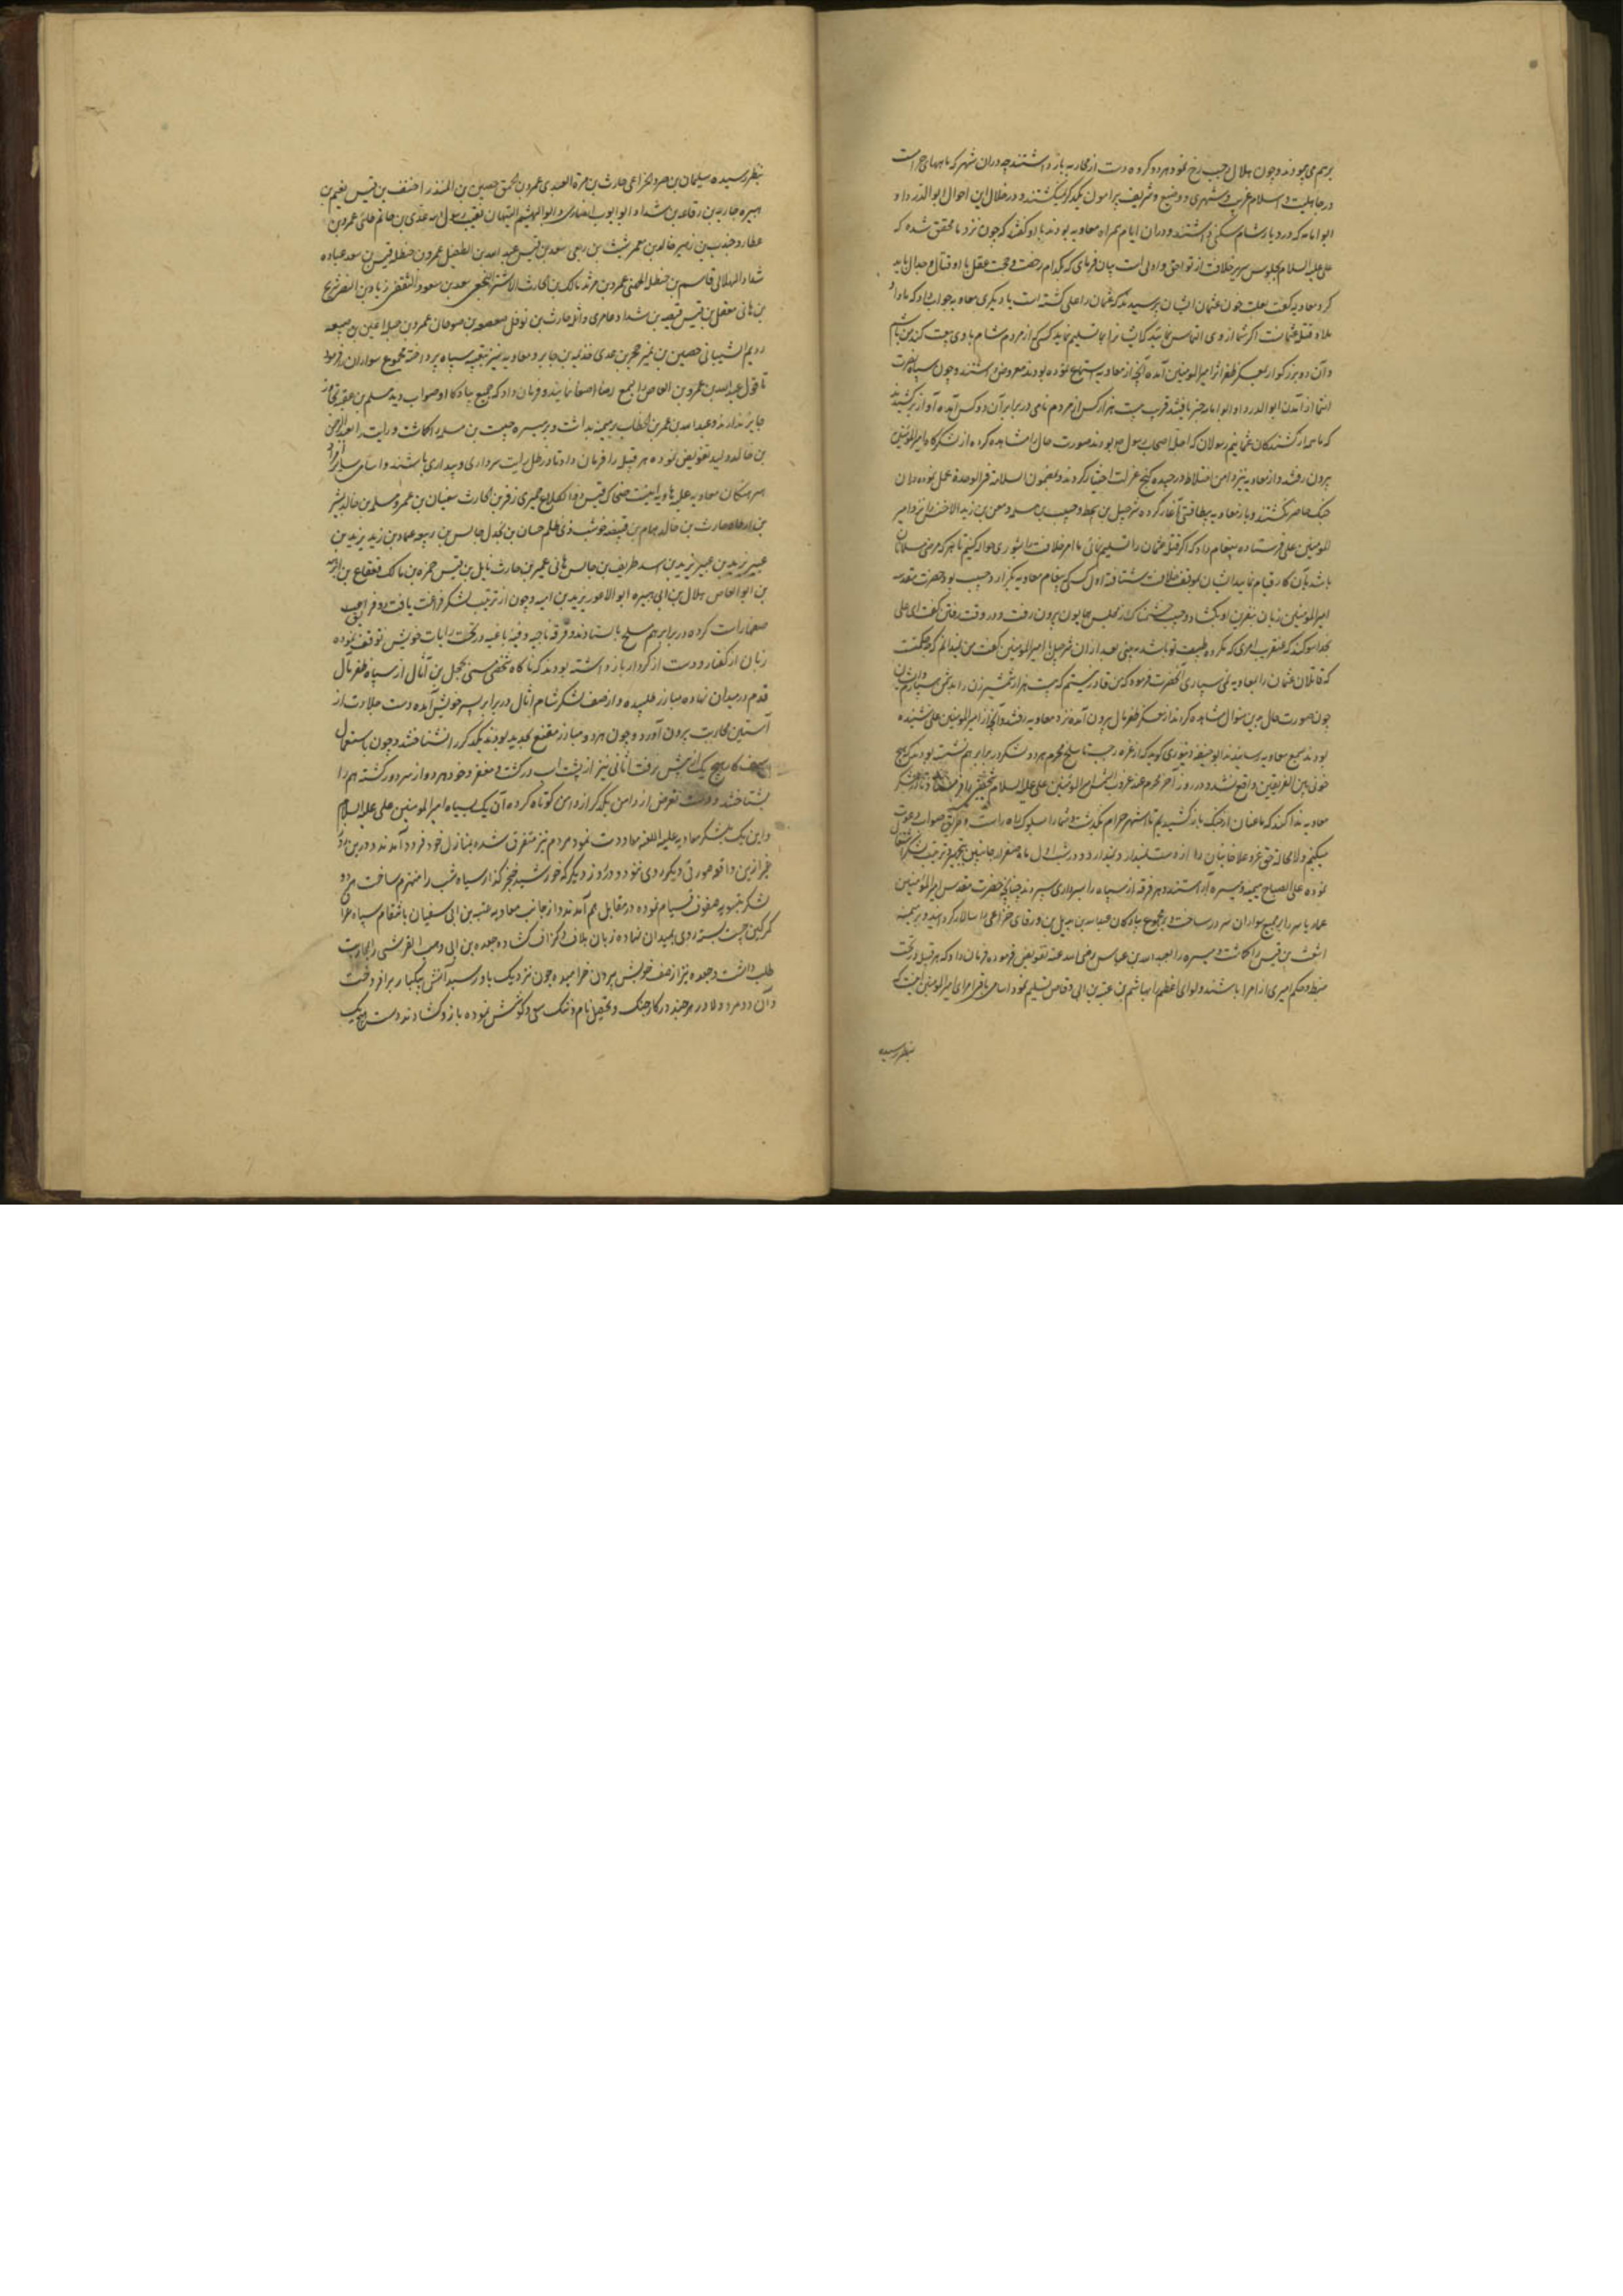 برهم می‌پیوندند و چون هلال رجب رخ نمود هر دو گروه دست از محاربه باز داشتند چه در آن شهر که ماههای حرامست
در جاهلیت و اسلام غریب و شهری و وضیع و شریف پیرامون یکدیگر نمیگشتند و در خلال این احوال ابوالدردا و
ابوامامه که در دیار شام سکنی داشتند و در آن ایام همراه معاویه بودند با او گفتند که چون نزد ما محقق شده که
علی علیه السلام بجلوس سریر خلافت از تو احق و اولی است بیان فرمای که بکدام رخصت و حجت عقل با او قتال و جدال باید
کرد معاویه گفت بعلت خون عثمان ایشان پرسیدند که عثمان را علی کشته است یا دیگری معاویه جواب داد که ما واو
ملاذ قتله عثمانست اگر شما از وی التماس نمایید که ایشانرا بما تسلیم نماید کسی که از مردم شام با وی بیعت کند من باشم
و آن دو بزرگوار بعسکر ظفر اثر امیرالمومنین آمده آنچه از معاویه استماع نموده بودند معروض داشتند و چون سپاه نصرت
انتما از آمدن ابوالدردا و ابوامامه خبر یافتند قریب بیست هزار کس از مردم نامی در برابر آن دو کس آمده آواز برکشیدند
که ما همه از کشندگان عثمانیم رسولان که اجله اصحاب رسول بودند صورت حال را مشاهده کرده از لشکرگاه امیرالمومنین
بیرون رفتند و از معاویه نیز دامن اختلاط درچیده کنج عزلت اختیار کردند و بمضمون السلامة فی الوحدة عمل نموده در آن
جنگ حاضر نگشتند و باز معاویه بیطاقتی آغاز کرده شرحبیل بن سمط و حبیب بن مسلمه و معن بن یزید الاخنس را نزد امیر
المومنین علی فرستاده پیغام داد که اگر قتله عثمان را تسلیم نمائی ما امر خلافت را بشوری حواله کنیم تا هر که مرضی مسلمانان
باشد بآن کار قیام نماید ایشان بموقف خلافت شتافته اول کسی که پیغام معاویه بگزارد حبیب بود حضرت مقدسه
امیرالمومنین زبان بنفرین او بگشاد و حبیب خشمناک از مجلس همایون بیرون رفت و در وقت رفتن گفت ای علی
بخدا سوگند که عنقریب امری که مکروه طبیعت تو باشد ببینی بعد از آن شرحبیل با امیرالمومنین گفت من نمیدانم که چه حکمتست
که قاتلان عثمان را بمعاویه نمی سپاری آنحضرت فرمود که من قادر نیستم که بیست هزار شمشیرزن را بدشمن سپارم و ایشان
چون صورت حال بدین منوال مشاهده کردند از معسکر ظفر مآل بیرون آمده نزد معاویه رفتند و آنچه از امیرالمومنین علی شنیده
بودند بسمع معاویه رسانیدند ابوحنیفه دینوری گوید که از غره رجب تا سلخ محرم هر دو لشکر در برابر هم نشسته بودند که هیچ
خونی بین الفریقین واقع نشد و در روز آخر محرم عند غروب الشمس امیرالمومنین علی علیه السلام شخصی را فرمود تا در لشکر
معاویه ندا کند که ما عنان از جنگ باز کشیدیم تا اشهر حرام بگذشت و شما را بسلوک راه راست و طریق صواب دعوت
میکنیم و لا محاله حق عز و علا خاینان را دوست ندارد و در شب اول ماه صفر از جانبین بتجهیز و ترتیب لشکر اشتغال
نموده علی الصباح میمنه و میسره آراستند و هر فرقه از سپاه را بسرداری سپردند چنانچه حضرت مقدس امیرالمومنین
عمار یاسر را بر جمیع سواران سرور ساخت و بر مجموع پیادگان عبدالله بن بدیل بن ورقای خزاعی را سالار گردانید و بر میمنه
اشعث بن قیس را گماشت و میسره را بعبدالله بن عباس رضی الله عنه تفویض فرموده فرمان داد که هر قبیله در تحت
ضبط و حکم امیری از امرا باشند و لوای اعظم را بهاشم بن عتبه بن ابی وقاص تسلیم نمود و اسامی باقی امرای امیرالمومنین اینست که
بنظر رسیده
بنظر رسیده سلیمان بن صرد خزاعی حارث بن مرة العبدی عمرو بن الحمق حصین بن المنذر احنف بن قیس نعیم بن
هبیره جاریه بن رفاعه بن شداد ابوایوب انصاری و ابوالهیثم التیهان نقیب رسول الله عدی بن حاتم طائی عمرو بن
عطارد جندب بن زهیر خالد بن معمر شبث بن ربعی سعد بن قیس عبدالله بن الطفیل عمرو بن حنظله قیس بن سعد عباده
شداد الهلالی قاسم بن حنظله الجهنی عمرو بن مرثد مالک بن الحارث الاشتر النخعی سعد بن مسعود الثقفی زیاد بن النضر شریح
بن هانی معقل بن قیس قبیصه بن شداد عامری واثل حارث بن نوفل صعصعه بن صوحان عمرو بن جبله اعین بن ضبیعه
رویم الشیبانی حصین بن نمیر حجر بن عدی جابر و معاویه نیز بتعبیه سپاه پرداخته مجموع سواران را فرمود
تا قول عبدالله بن عمرو بن العاص را بسمع رضا اصغا نمایند و فرمان داد که جمیع پیادگان او صواب دید مسلم بن عقبه تجاوز
جایز ندارند و عبدالله بن عمر بن الخطاب بر میمنه بداشت و بر میسره حبیب بن مسلمه را گماشت و رایت را بعبدالرحمن
بن خالد ولید تفویض نموده هر قبیله را فرمان داد تا در ظل رایت سرداری و سپهداری باشند و اسامی سایر امراء
سرهنگان معاویه علیه الهاویه اینست ضحاک قیس ذوالکلاع حمیری زفر بن الحارث سفیان بن عمرو مسلمه بن خالد بشر
بن ارطاه حارث بن خالد همام بن قبیصه حوشب ذی ظلم حسان بن بجدل حابس بن ربیعه عباد بن زید یزید بن
عبیر یزید بن هبیره یزید بن اسد طریف بن حابس هانی عمیر بن حارث نابل بن قیس حمزه بن مالک قعقاع بن ابرهه
بن ابوالعاص هلال بن ابی هبیره ابوالاعور یزید بن امیه و چون از ترتیب لشکر فراغت یافت دو فریق عجیب
صفها راست کرده در برابر هم مسلح بایستادند و فرقه ناجیه و فئه باغیه در تحت رایات خویش توقف نموده
زبان از گفتار و دست از کردار باز داشته بودند که ناگاه شخصی مسمی بحجل بن آثال از سپاه ظفر مآل
قدم در میدان نهاده مبارز طلبیده و از صف لشکر شام اثال در برابر پسر خویش آمده دست جلادت از
آستین محاربت بیرون آورد و چون هر دو مبارز مقنع بحدید بودند یکدیگر را نشناختند و چون استعمال
سیف کار هیچ یک از پیش نرفت اثانی نیز از پشت اسب درگشت و مغفر و خود هر دو از سر دور گشته هم را
بشناختند و دست تعرض از دامن یکدیگر از دامن کوتاه کرده آن یک بسپاه امیرالمومنین علی علیه السلام
و این یک بلشکر معاویه علیه اللعنه معاودت نمود مردم نیز متفرق شده بمنازل خود فرود آمدند و درین روز
غیر ازین واقعه صورتی دیگر روی ننمود و در روز دیگر که خورشید خنجر گذار سپاه شب را منهزم ساخت هر دو
لشکر بتسویه صفوف قیام نموده در مقابل هم آمدند و از جانب معاویه عتبه بن ابی سفیان بانتقام سپاه عراق
کمر کین چست بسته روی بمیدان نهاده زبان بلاف و گزاف گشاده جعده بن ابی وهب القرشی را بمحاربت
طلب داشت و جعده نیز از صف خویش بیرون خرامید و چون نزدیک باو رسید آتش پیکار برافروخت
و آن دو مرد دلاور هر چند در کار جنگ و تحصیل نام و ننگ سعی و کوشش نموده بازو گشادند دست هیچ یک